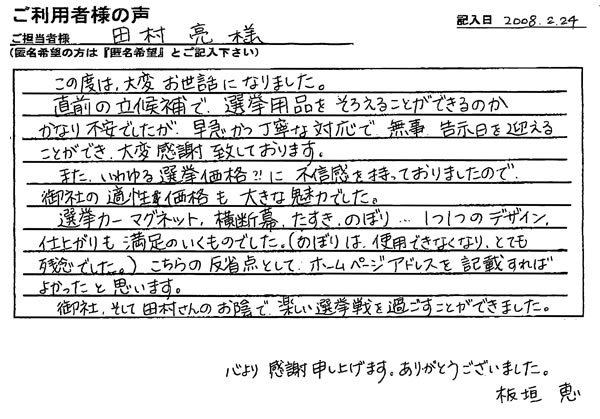 ご利用者様の声
記入日 2008.2.24
ご担当者様 田村 亮 様
(匿名希望の方は『匿名希望』とご記入下さい)
この度は、大変お世話になりました。
直前の立候補で、選挙用品をそろえることができるのか
かなり不安でしたが、早急かつ丁寧な対応で、無事、告示日を迎える
ことができ、大変感謝致しております。
また、いわゆる選挙価格?!に不信感を持っておりましたので、
御社の適性価格も大きな魅力でした。
選挙カーマグネット、横断幕、たすき、のぼり…1つ1つのデザイン、
仕上がりも満足のいくものでした。(のぼりは、使用できなくなり、とても
残念でした。)こちらの反省点として、ホームページアドレスを記載すれば
よかったと思います。
御社、そして田村さんのお陰で、楽しい選挙戦を過ごすことができました。
心より感謝申し上げます。ありがとうございました。
板垣 恵